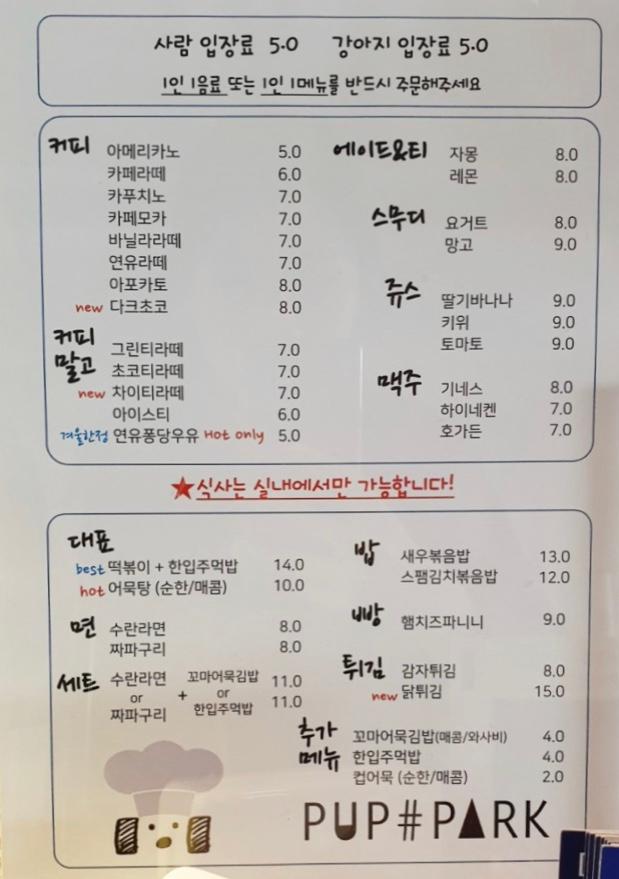 사람 입장료 5.0 강아지 입장료 5.0
1인 1음료 또는 1인 1메뉴를 반드시 주문해주세요
커피
아메리카노 5.0
카페라떼 6.0
카푸치노 7.0
카페모카 7.0
바닐라라떼 7.0
연유라떼 7.0
아포카토 8.0
new 다크초코 8.0
커피
말고
그린티라떼 7.0
초코티라떼 7.0
new 차이티라떼 7.0
아이스티 6.0
겨울한정 연유퐁당우유 Hot only 5.0
에이드&티
자몽 8.0
레몬 8.0
스무디
요거트 8.0
망고 9.0
쥬스
딸기바나나 9.0
키위 9.0
토마토 9.0
맥주
기네스 8.0
하이네켄 7.0
호가든 7.0
★식사는 실내에서만 가능합니다!
대표
best 떡볶이 + 한입주먹밥 14.0
hot 어묵탕 (순한/매콤) 10.0
면
수란라면 8.0
짜파구리 8.0
세트
수란라면 or 짜파구리 + 꼬마어묵김밥 11.0
or
한입주먹밥 11.0
밥
새우볶음밥 13.0
스팸김치볶음밥 12.0
빵
햄치즈파니니 9.0
튀김
감자튀김 8.0
new 닭튀김 15.0
추가
메뉴
꼬마어묵김밥(매콤/와사비) 4.0
한입주먹밥 4.0
컵어묵 (순한/매콤) 2.0
PUP#PARK